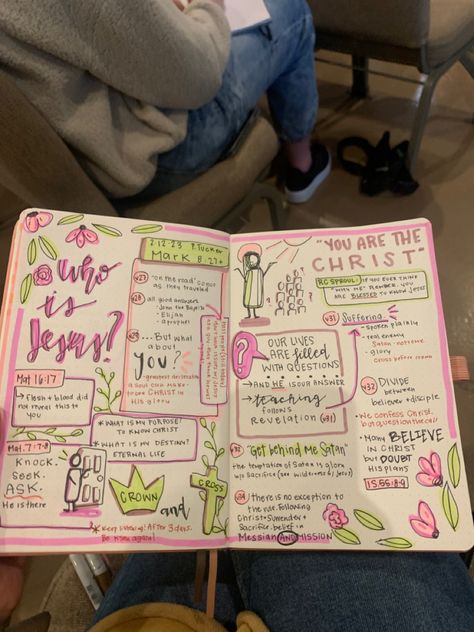 Who
is
Jesus?
Mat 16:17
↳ Flesh + blood did
not reveal this to
you
Mat. 7:7-8
KNOCK.
SEEK.
ASK.
He is there
2.12.23 P. Tucker
Mark 8:27+
v27 "on the road" scope
as they traveled
v28 all good answers
- John the Baptist
- Elijah
- a prophet
v29 ... But what
about
YOU?
* WHAT IS MY PURPOSE?
TO KNOW CHRIST
* WHAT IS MY DESTINY?
ETERNAL LIFE
CROWN
and
CROSS
* Keep following! After 3 days,
"YOU ARE THE
CHRIST"
RC SPROUL: IF YOU EVER THINK
"WOE IS ME" REMEMBER, YOU
ARE BLESSED TO KNOW JESUS
OUR LIVES
ARE filled
WITH QUESTIONS
→ AND HE IS OUR ANSWER
↳ teaching
follows
Revelation (v31)
v31 Suffering
- spoken plainly
- real enemy
- glory
cross before crown
v32 DIVIDE
between
believer + disciple
We confess Christ,
but question the
* Many BELIEVE
IN CHRIST
but DOUBT
HIS plans
IS. 55:8-9
"Get behind me Satan"
the temptation of Satan is glory
w/o Sacrifice (see wilderness w/ Jesus)
v34 there is no exception to
the rule. Following
Christ = Surrender +
Sacrifice. belief in
Messiah AND MISSION